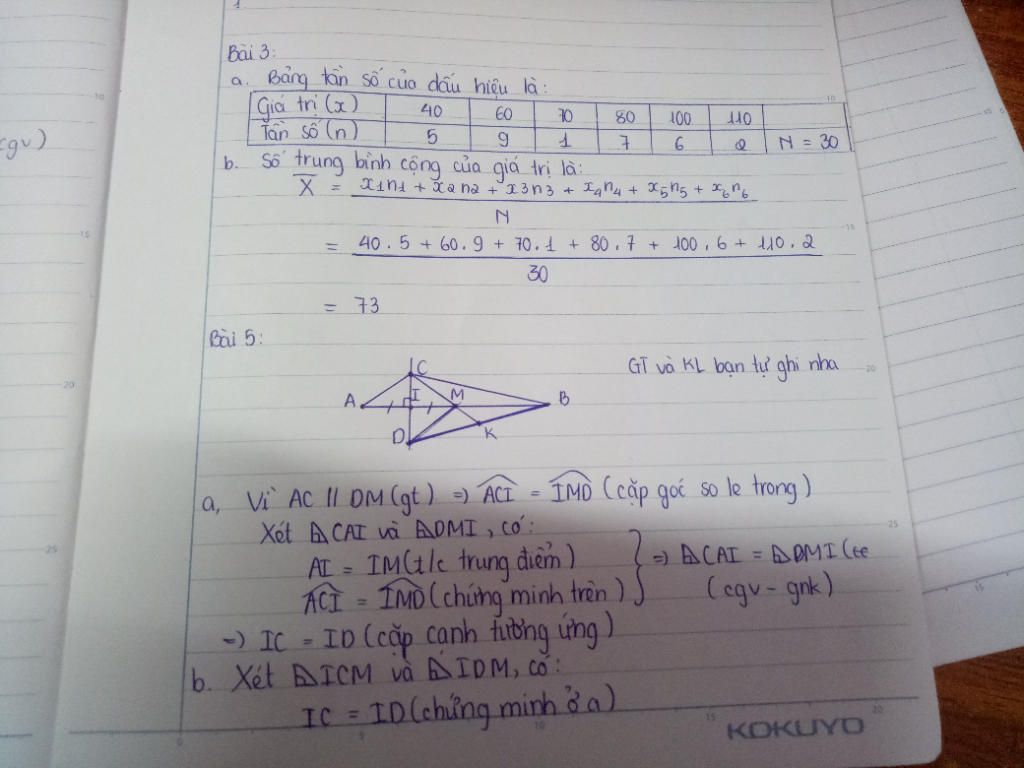 cgv)
Bài 3:
a. Bảng tần số của dấu hiệu là:
Giá trị (x) 40 60 70 80 100 110
Tần số (n) 5 9 1 7 6 2 N = 30
b. Số trung bình cộng của giá trị là:
X̅ = x₁n₁ + x₂n₂ + x₃n₃ + x₄n₄ + x₅n₅ + x₆n₆
N
= 40.5 + 60.9 + 70.1 + 80.7 + 100.6 + 110.2
30
= 73
Bài 5:
GT và KL bạn tự ghi nha
C
A I M B
D K
a, Vì AC // DM (gt) => ACI = IMD (cặp góc so le trong)
Xét ΔCAI và ΔDMI, có:
AI = IM (t/c trung điểm)
ACI = IMD (chứng minh trên) } => ΔCAI = ΔDMI (
(cgv - gnk)
=> IC = ID (cặp cạnh tương ứng)
b. Xét ΔICM và ΔIDM, có:
IC = ID (chứng minh ở a)
KOKUYO